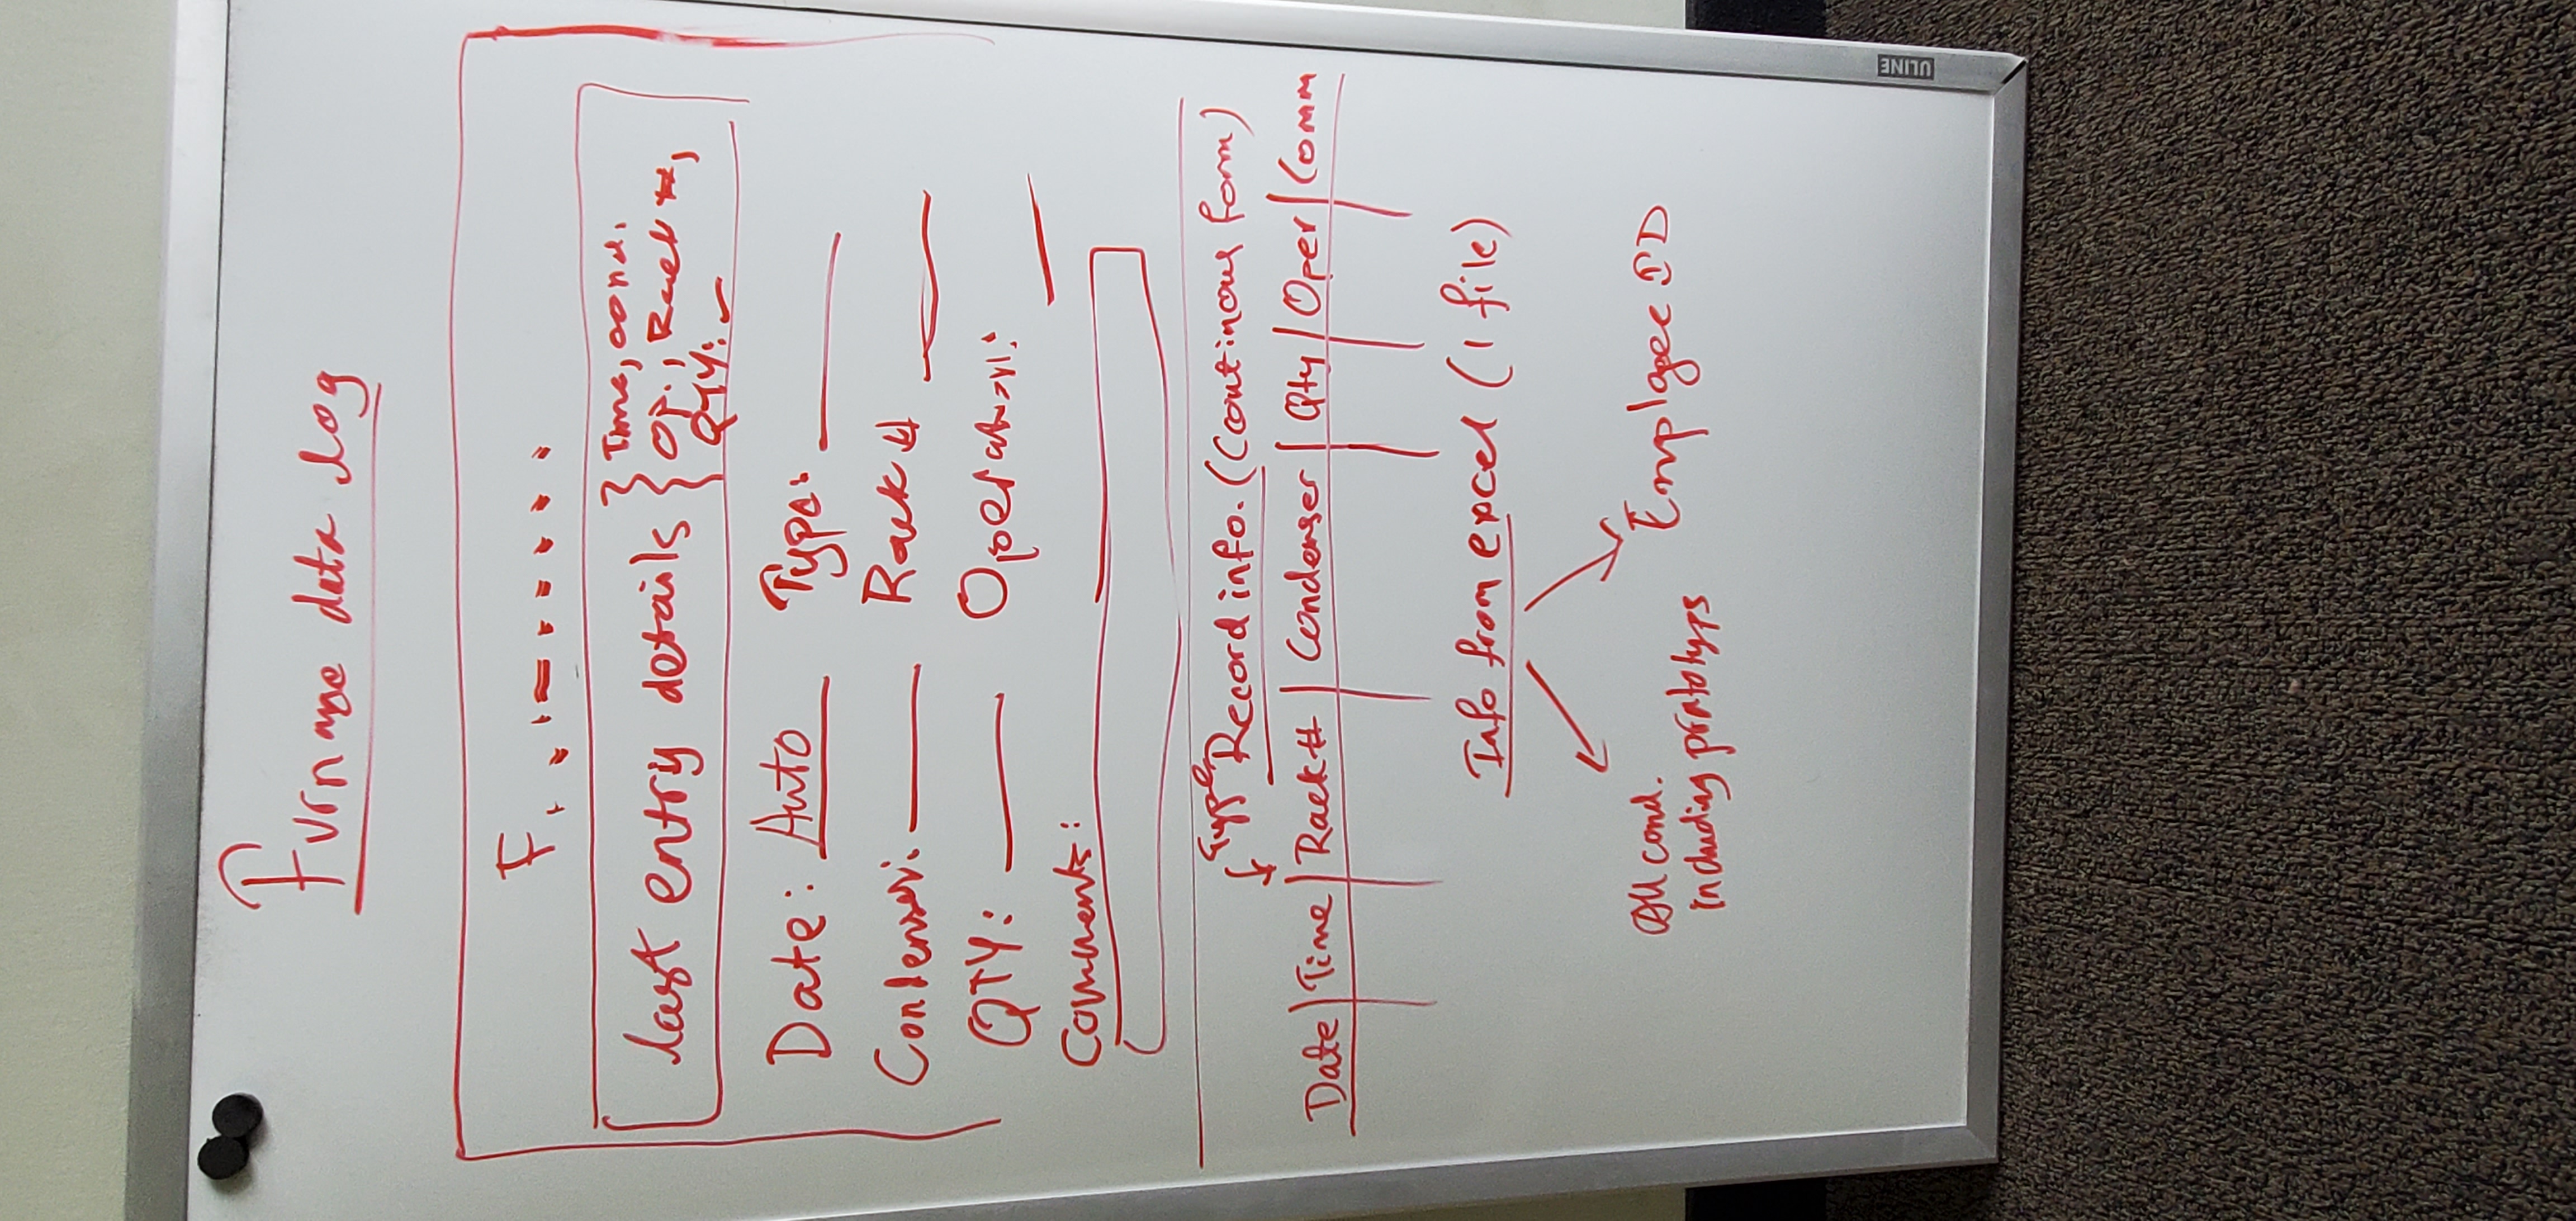 Furnace data log
F
last entry details } Time, cond.
Op., Rack #,
QTY:
Date: Auto Type:
Condenser: Rack #
QTY: Operator:
Comments:
Type
Record info. (Continous form)
Date | Time | Rack # | Condenser | Qty | Oper | Comm
Info from excel (1 file)
All cond.
including prototyps
Employee ID
ULINE